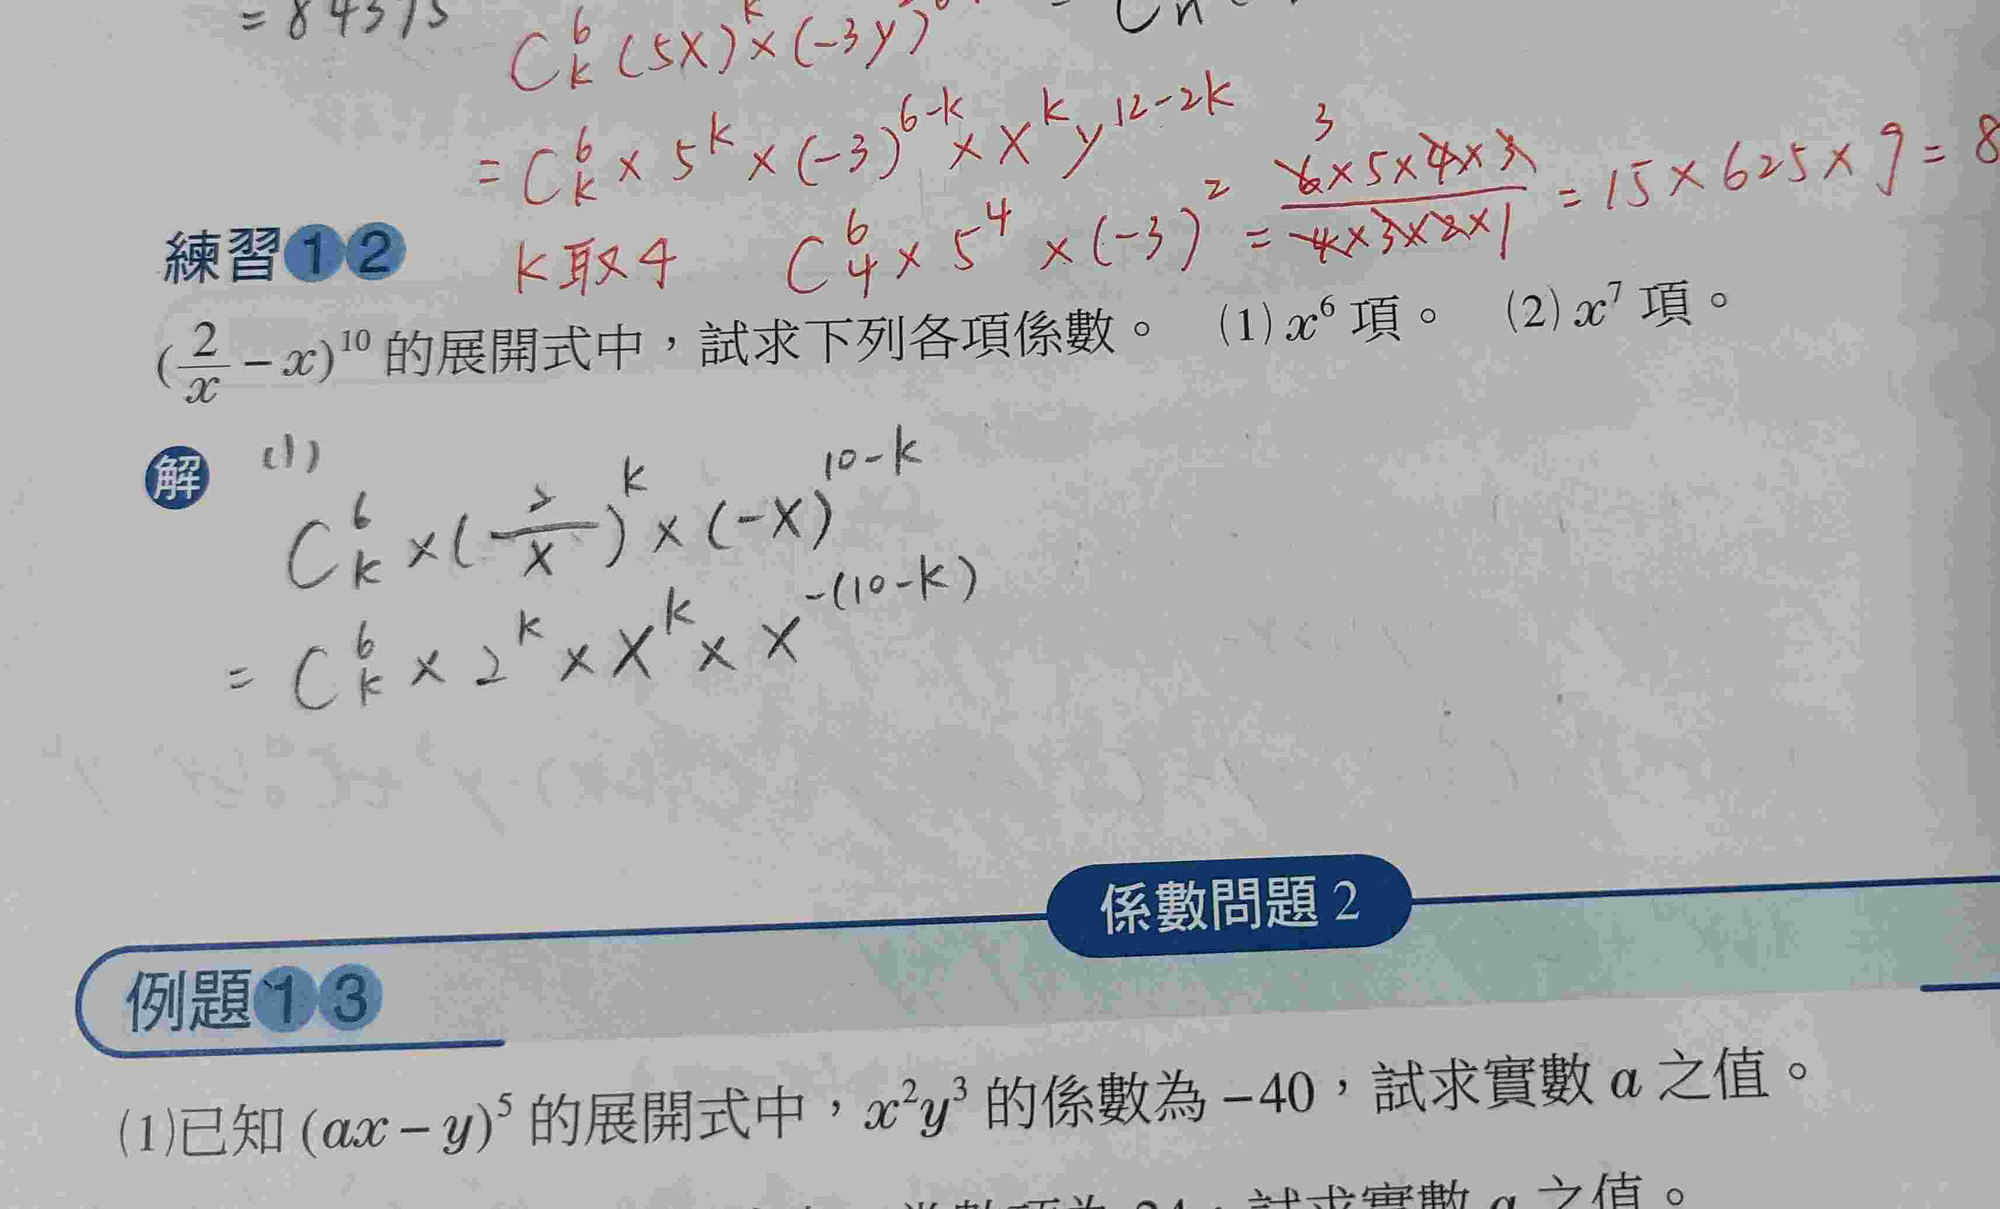 = 84375
C^6_k (5X)^k × (-3y
= C^6_k × 5^k × (-3)^{6-k} × X^k y^{12-2k}
k取4 C^6_4 × 5^4 × (-3)^2 = \frac{6×5×4×3}{4×3×2×1} = 15 × 625 × 9 = 8
3
練習12
(\frac{2}{x} - x)^{10} 的展開式中，試求下列各項係數。 (1) x^6 項。 (2) x^7 項。
解 (1)
C^6_k × (\frac{2}{X})^k × (-X)^{10-k}
= C^6_k × 2^k × X^k × X^{-(10-k)}
係數問題 2
例題13
(1)已知 (ax - y)^5 的展開式中，x^2y^3 的係數為 -40，試求實數 a 之值。
試求實數 a 之值。